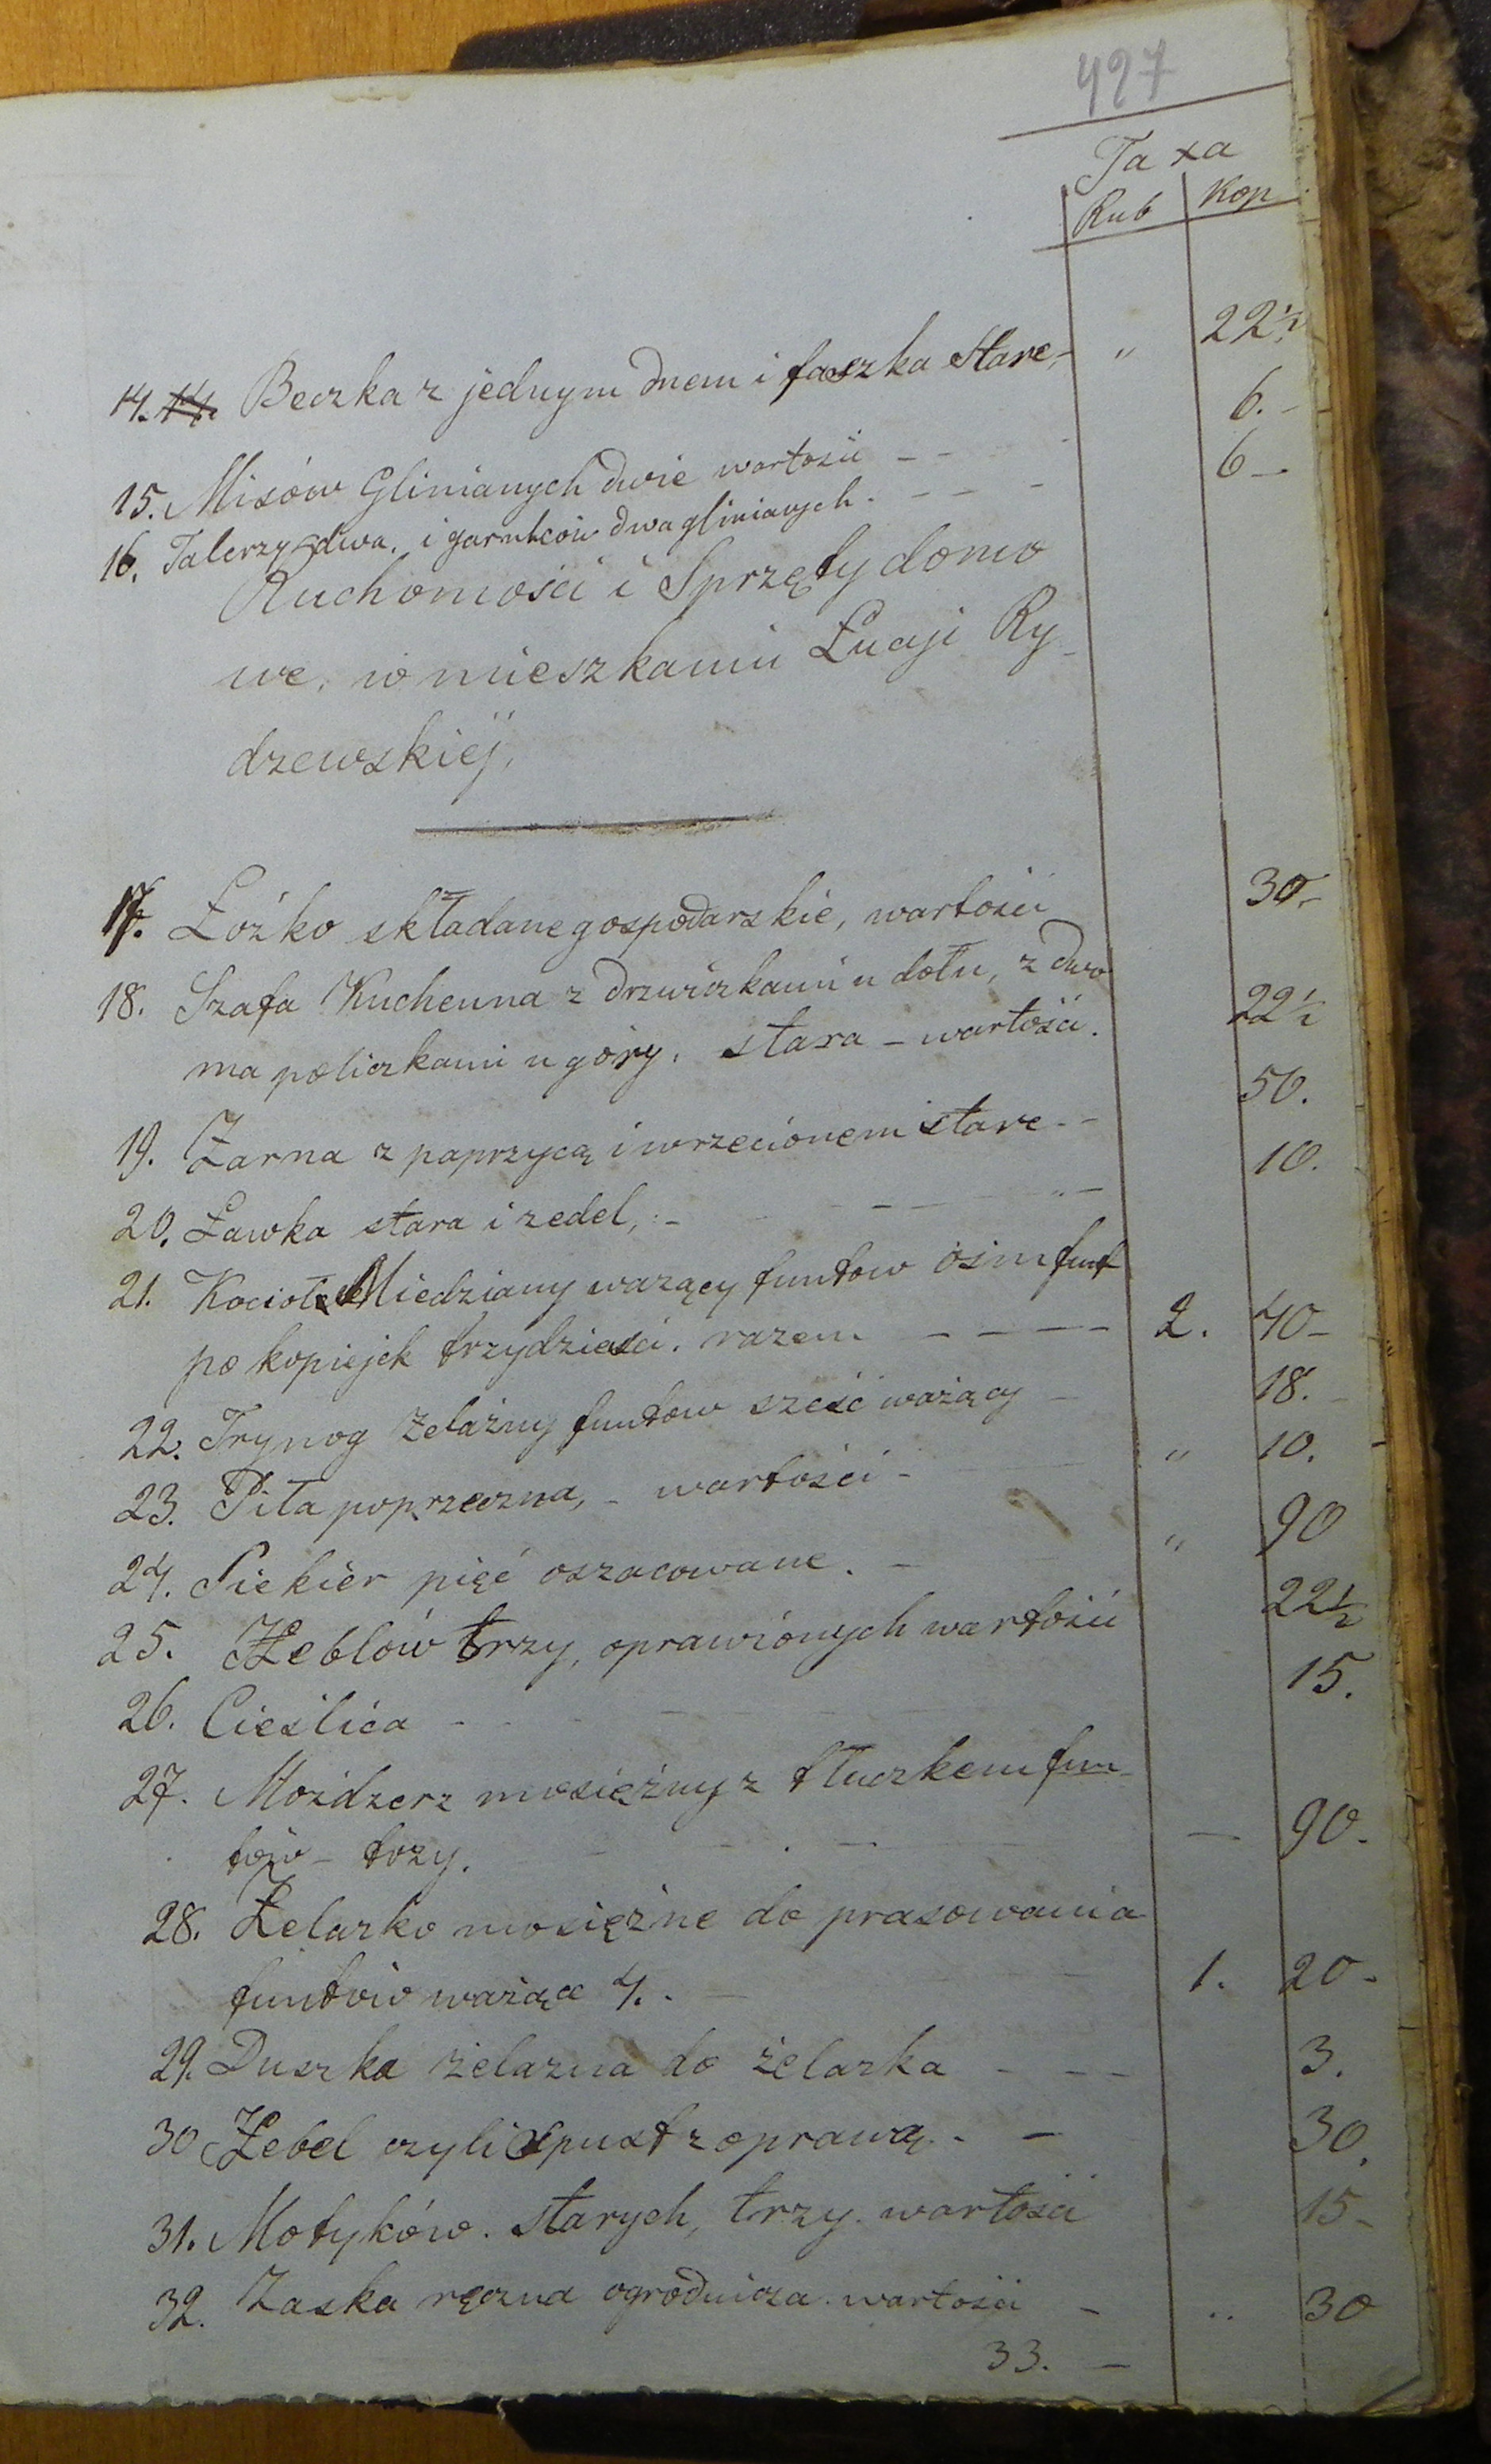 497
Taxa
Rub Kop
14. 14. Beczka z jednym dnem i faszka stare, - " 22 ½
15. Misów Glinianych dwie wartości - - 6. -
16. Talerzy dwa. i garnków dwa glinianych. - - - 6 -
Ruchomości i Sprzęty domo
we, w mieszkaniu Łucji Ry
dzewskiej,
17. Łożko składane gospodarskie, wartości 30 -
18. Szafa Kuchenna z drzwiczkami u dołu, z dwo
ma policzkami u góry. stara - wartości. 22 ½
19. Żarna z paprzycą i wrzecionem stare - - 50.
20. Ławka stara i zedel, - - - 10.
21. Kociołek Miedziany ważący funtow ośm funt
po kopiejek trzydzieści. razem - - - - 2. 40 -
22. Trynog Żelazny funtow sześć ważący - 18. -
23. Piła poprzeczna, - wartości - " 10.
24. Siekier pięć oszacowane. - " 90
25. Heblów trzy, oprawionych wartości 22 ½
26. Cieślica - - 15.
27. Moździerz mosiężny z tłuczkem fun
tów - trzy. - - 90.
28. Żelazko mosiężne do prasowania
funtów ważące 4. - 1. 20 -
29. Duszka żelazna do żelazka - - - 3.
30 Hebel czyli Spust z oprawą. - - 30.
31. Motyków. starych, trzy. wartości 15 -
32. Zaska ręczna ogrodnicza. wartości - .. 30
33. -